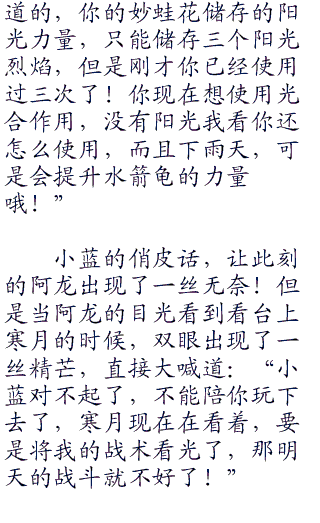 道的，你的妙蛙花储存的阳
光力量，只能储存三个阳光
烈焰，但是刚才你已经使用
过三次了！你现在想使用光
合作用，没有阳光我看你还
怎么使用，而且下雨天，可
是会提升水箭龟的力量
哦！”
小蓝的俏皮话，让此刻
的阿龙出现了一丝无奈！但
是当阿龙的目光看到看台上
寒月的时候，双眼出现了一
丝精芒，直接大喊道：“小
蓝对不起了，不能陪你玩下
去了，寒月现在在看着，要
是将我的战术看光了，那明
天的战斗就不好了！”